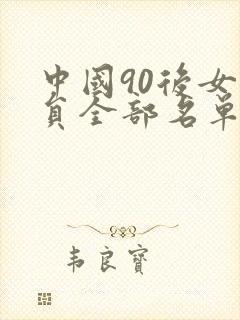 中國90後女
員全部名單
韦良寶